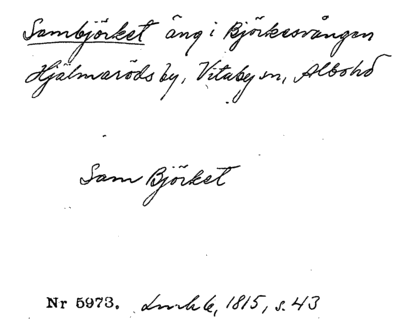 Sambjörket äng i Björkesvången
Hjälmaröds by, Vitaby sn, Albo hd
Sam Björket
Nr 5973. 1815, s. 43